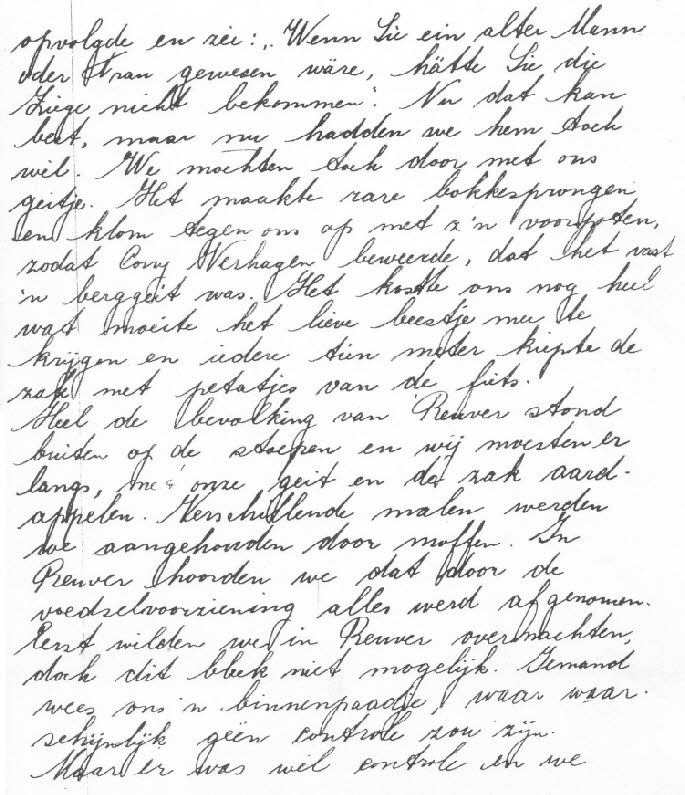 opvolgde en zei: „Wenn Sie ein alter Mann
oder Frau gewesen wäre, hätte Sie die
Ziege nicht bekommen". Nu dat kan
best, maar nu hadden we hem toch
wel. We mochten toch door met ons
geitje. Het maakte rare bokkesprongen
en klom tegen ons op met z'n voorpoten,
zodat Corry Verhagen beweerde, dat het vast
'n berggeit was. Het kostte ons nog heel
wat moeite het lieve beestje mee te
krijgen en iedere tien meter kiepte de
zak met petatjes van de fiets.
Heel de bevolking van Reuver stond
buiten op de stoepen en wij moesten er
langs, met onze geit en de zak aard-
appelen. Verschillende malen werden
we aangehouden door moffen. In
Reuver hoorden we dat door de
voedselvoorziening alles werd afgenomen.
Eerst wilden we in Reuver overnachten,
doch dit bleek niet mogelijk. Iemand
wees ons 'n binnenpaadje, waar waar-
schijnlijk geën controle zou zijn.
Maar er was wel controle en we